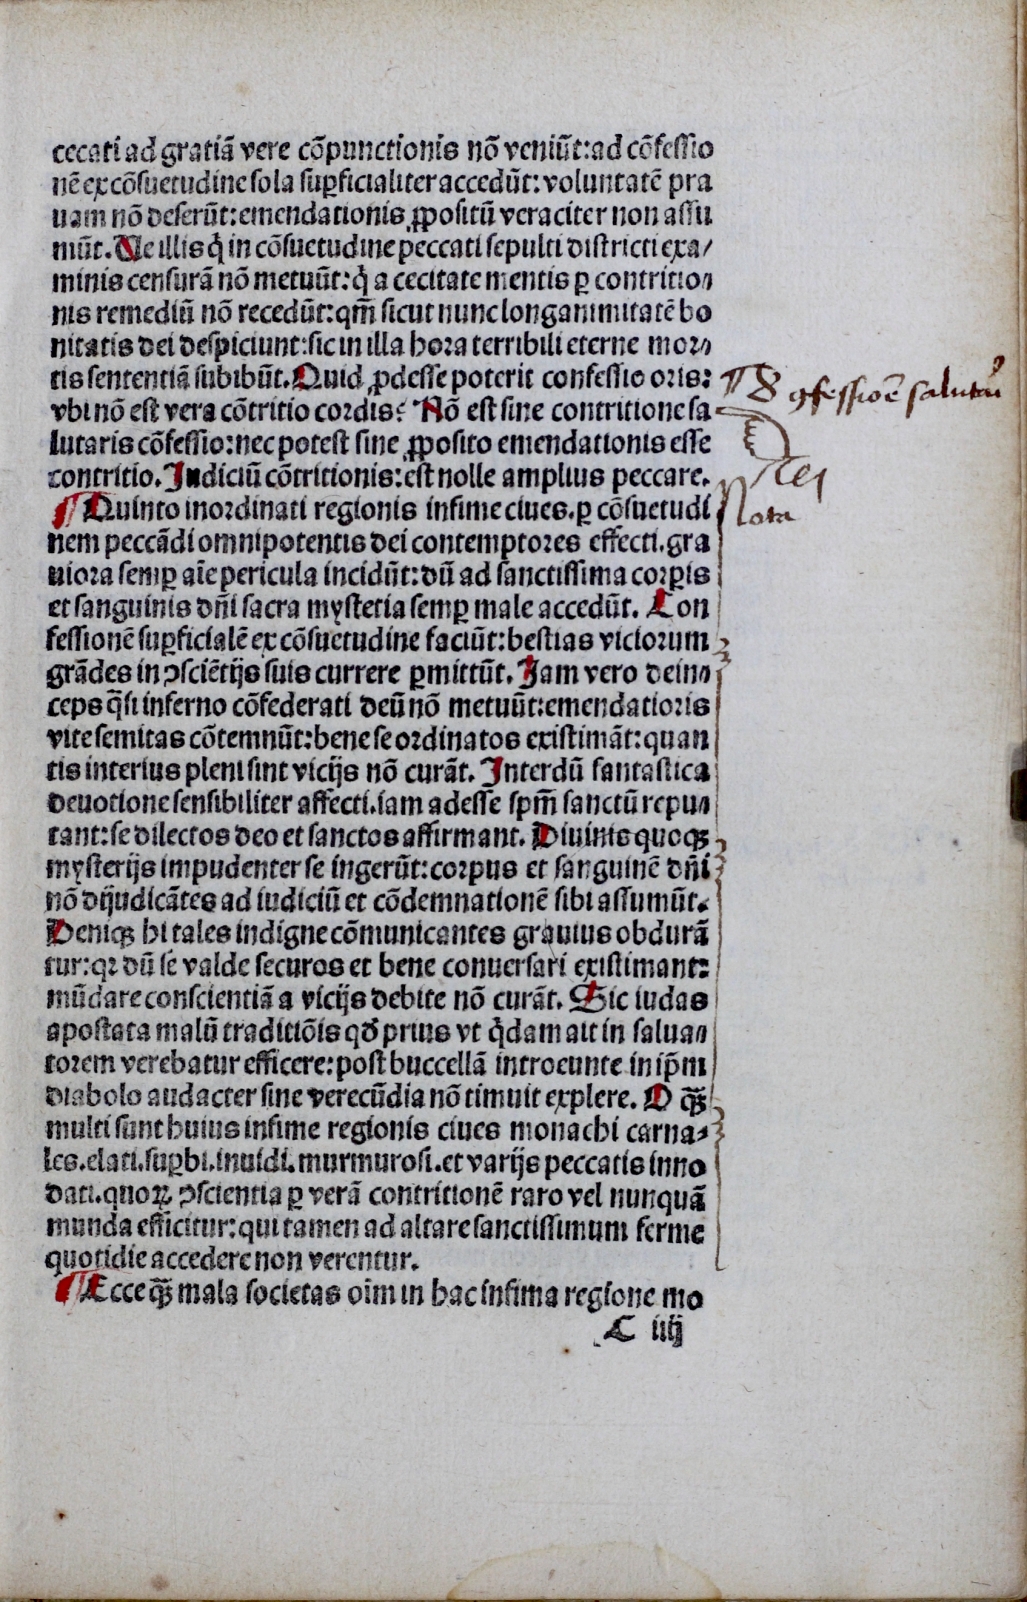 cecati ad gratiā vere cōpunctionis nō veniūt: ad cōfessio
nē ex cōsuetudine sola suꝑficialiter accedūt: voluntatē pra
uam nō deserūt: emendationis ꝓpositū veraciter non assu
mūt. Ve illis q̇ in cōsuetudine peccati sepulti districti exa/
minis censurā nō metuūt: q̇ a cecitate mentis ꝑ contritio⸗
nis remediū nō recedūt: qm̄ sicut nunc longanimitatē bo
nitatis dei despiciunt: sic in illa hora terribili eterne mor⸗
tis sententiā subibūt. Quid ꝓdesse poterit confessio oris:
vbi nō est vera cōtritio cordis? Nō est sine contritione sa
lutaris cōfessio: nec potest sine ꝓposito emendationis esse
contritio. Iudiciū cōtritionis: est nolle amplius peccare.
¶ Quinto inordinati regionis infime ciues. ꝑ cōsuetudi
nem peccādi omnipotentis dei contemptores effecti. gra
uiora semꝑ aīe pericula incidūt: dū ad sanctissima corꝑis
et sanguinis dn̄i sacra mysteria semꝑ male accedūt. Con
fessionē suꝑficialē ex cōsuetudine faciūt: bestias viciorum
grādes in ↄsciētijs suis currere ꝑmittūt. Iam vero dein⸗
ceps q̄si inferno cōfederati deū nō metuūt: emendatioris
vite semitas cōtemnūt: bene se ordinatos existimāt: quan
tis interius pleni sint vicijs nō curāt. Interdū fantastica
deuotione sensibiliter affecti. iam adesse spm̄ sanctū repu⸗
tant: se dilectos deo et sanctos affirmant. Diuinis quoqꝫ
mysterijs impudenter se ingerūt: corpus et sanguinē dn̄i
nō dijudicātes ad iudiciū et cōdemnationē sibi assumūt.
Deniqꝫ hi tales indigne cōmunicantes grauius obdurā
tur: qꝛ dū se valde securos et bene conuersari existimant:
mūdare conscientiā a vicijs debite nō curāt. Sic iudas
apostata malū traditiōis qð prius vt q̇dam ait in salua⸗
torem verebatur efficere: post buccellā introeunte in ip̄m
diabolo audacter sine verecūdia nō timuit explere. O q̄ꝫ
multi sunt huius infime regionis ciues monachi carna⸗
les. elati. suꝑbi. inuidi. murmurosi. et varijs peccatis inno
dati. quoꝝ ↄscientia ꝑ verā contritionē raro vel nunquā
munda efficitur: qui tamen ad altare sanctissimum ferme
quotidie accedere non verentur.
¶ Ecce q̄ꝫ mala societas oīm in hac infima regione mo
C iiij
ꝯfessioē salutari
Nota